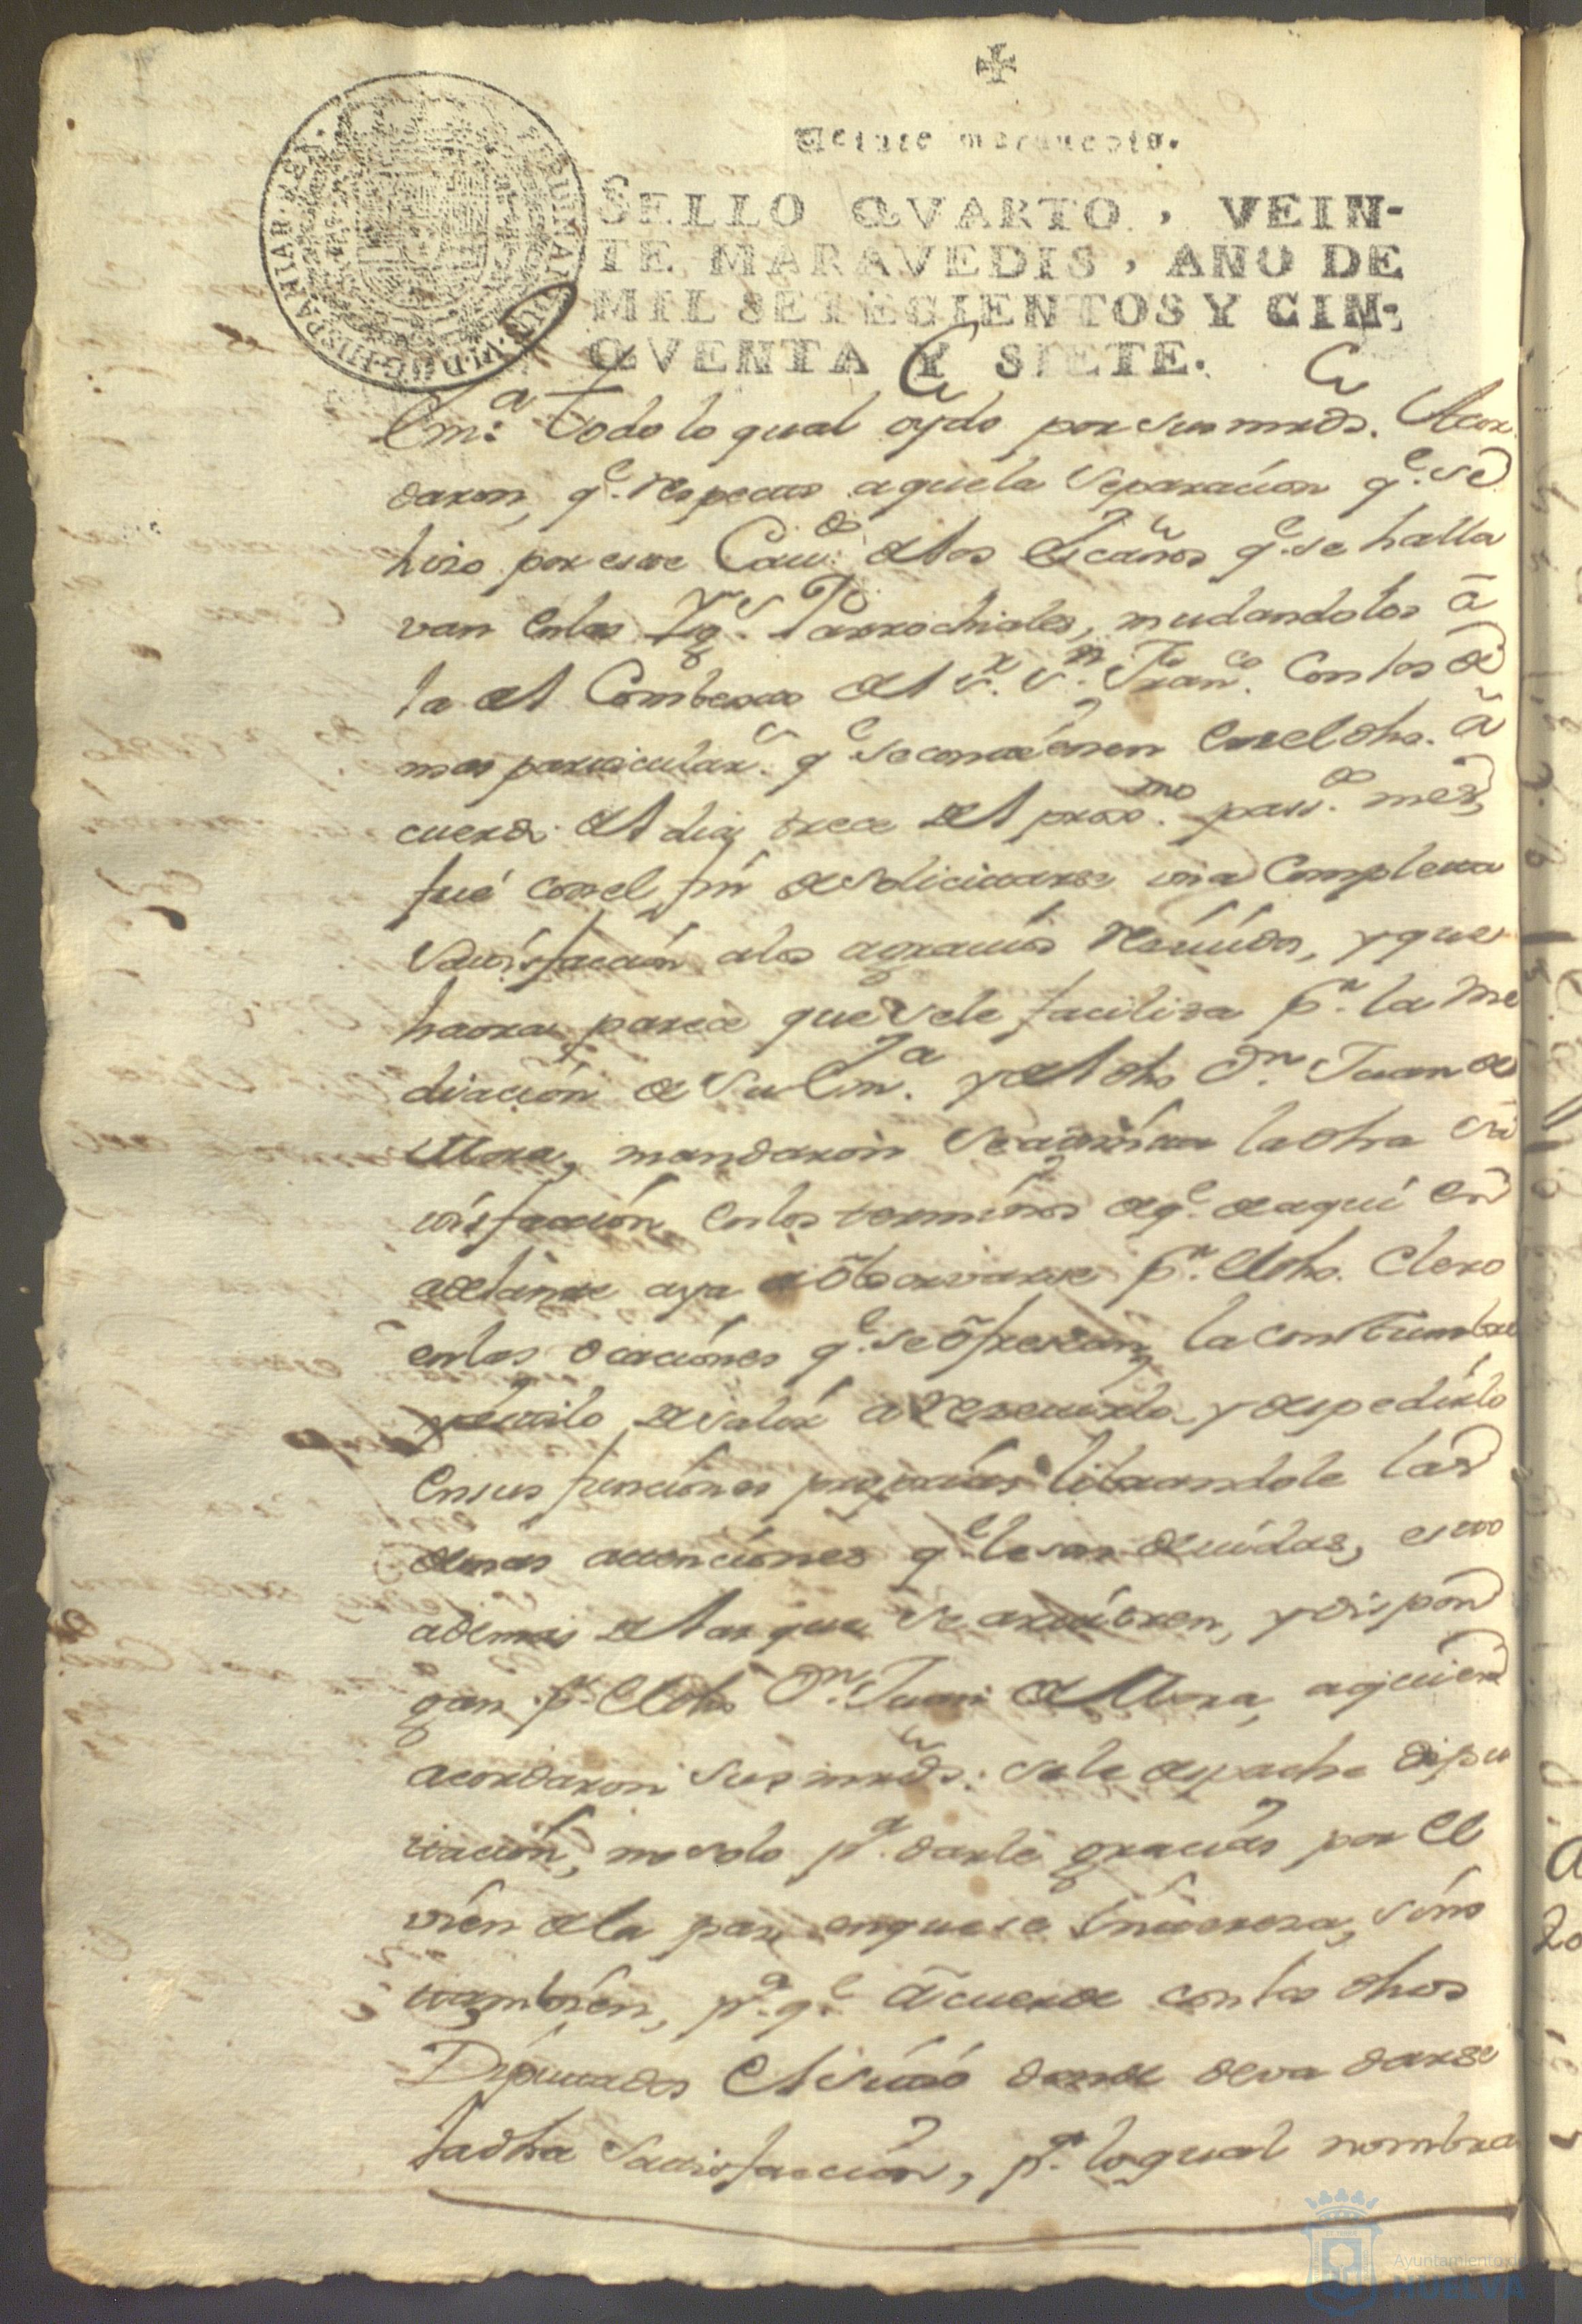 Veinte maravedis.
SELLO QVARTO, VEIN-
TE MARAVEDIS, AÑO DE
MIL SETECIENTOS Y CIN-
QVENTA Y SIETE.
HISPANIAR. REX.
VI. D. G.
Em.ª todo lo qual oydo por sus mrds. Acor
daron, q.e respecto aquela separacion q.e se
hizo por este Cav.do de los Escaños q.e se halla
van en las Ygs. Parrochiales, mudandolos â
la del Combento del S.r S.n Fran.co con los de
mas particular.s q.e se contienen en el dho. â
cuerdo del dia trece del prox.mo pass.do mes,
fué con el fin de solicitarse una completa
satisfaccion a los agravios recividos, y que
haora parece que se le facilita p.r la Me
diación de Su Em.ª y del dho D.n Juan de
Mora, mandaron se admita la dha sa
tisfacción en los terminos de q.e de aqui en
adelante aya de observarse p.r el dho. Clero
en las ocaciónes q.e se ôfrescan la constumbre
y estilo de salir a recevirla y despedirlo
en sus funciónes propias librandole las
demas atenciónes q.e le son devidas, esto
ademas de las que se arvitren, y dispon
gan p.r el dho D.n Juan de Mora, a quien
acordaron sus mrds. se le despache dipu
tación, no solo p.ª darle gracias por el
vien de la paz en que se interesa, sino
tambien, p.ª q.e âcuerde con los dhos
Diputados el sitio donde deva darse
la dha satisfacción, p.ª lo qual nombra
Ayuntamiento de
HUELVA